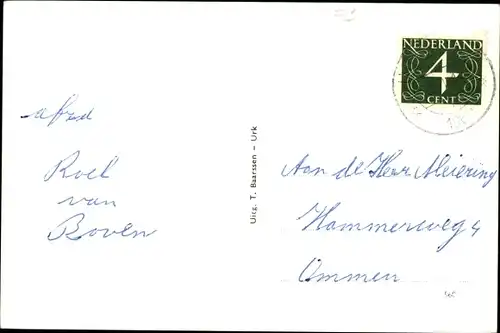 NEDERLAND
4
CENT
afzd
Roel
van
Boven
Uitg. T. Baarssen - Urk
Aan de Heer Meiering
Hammerweg 4
Ommen